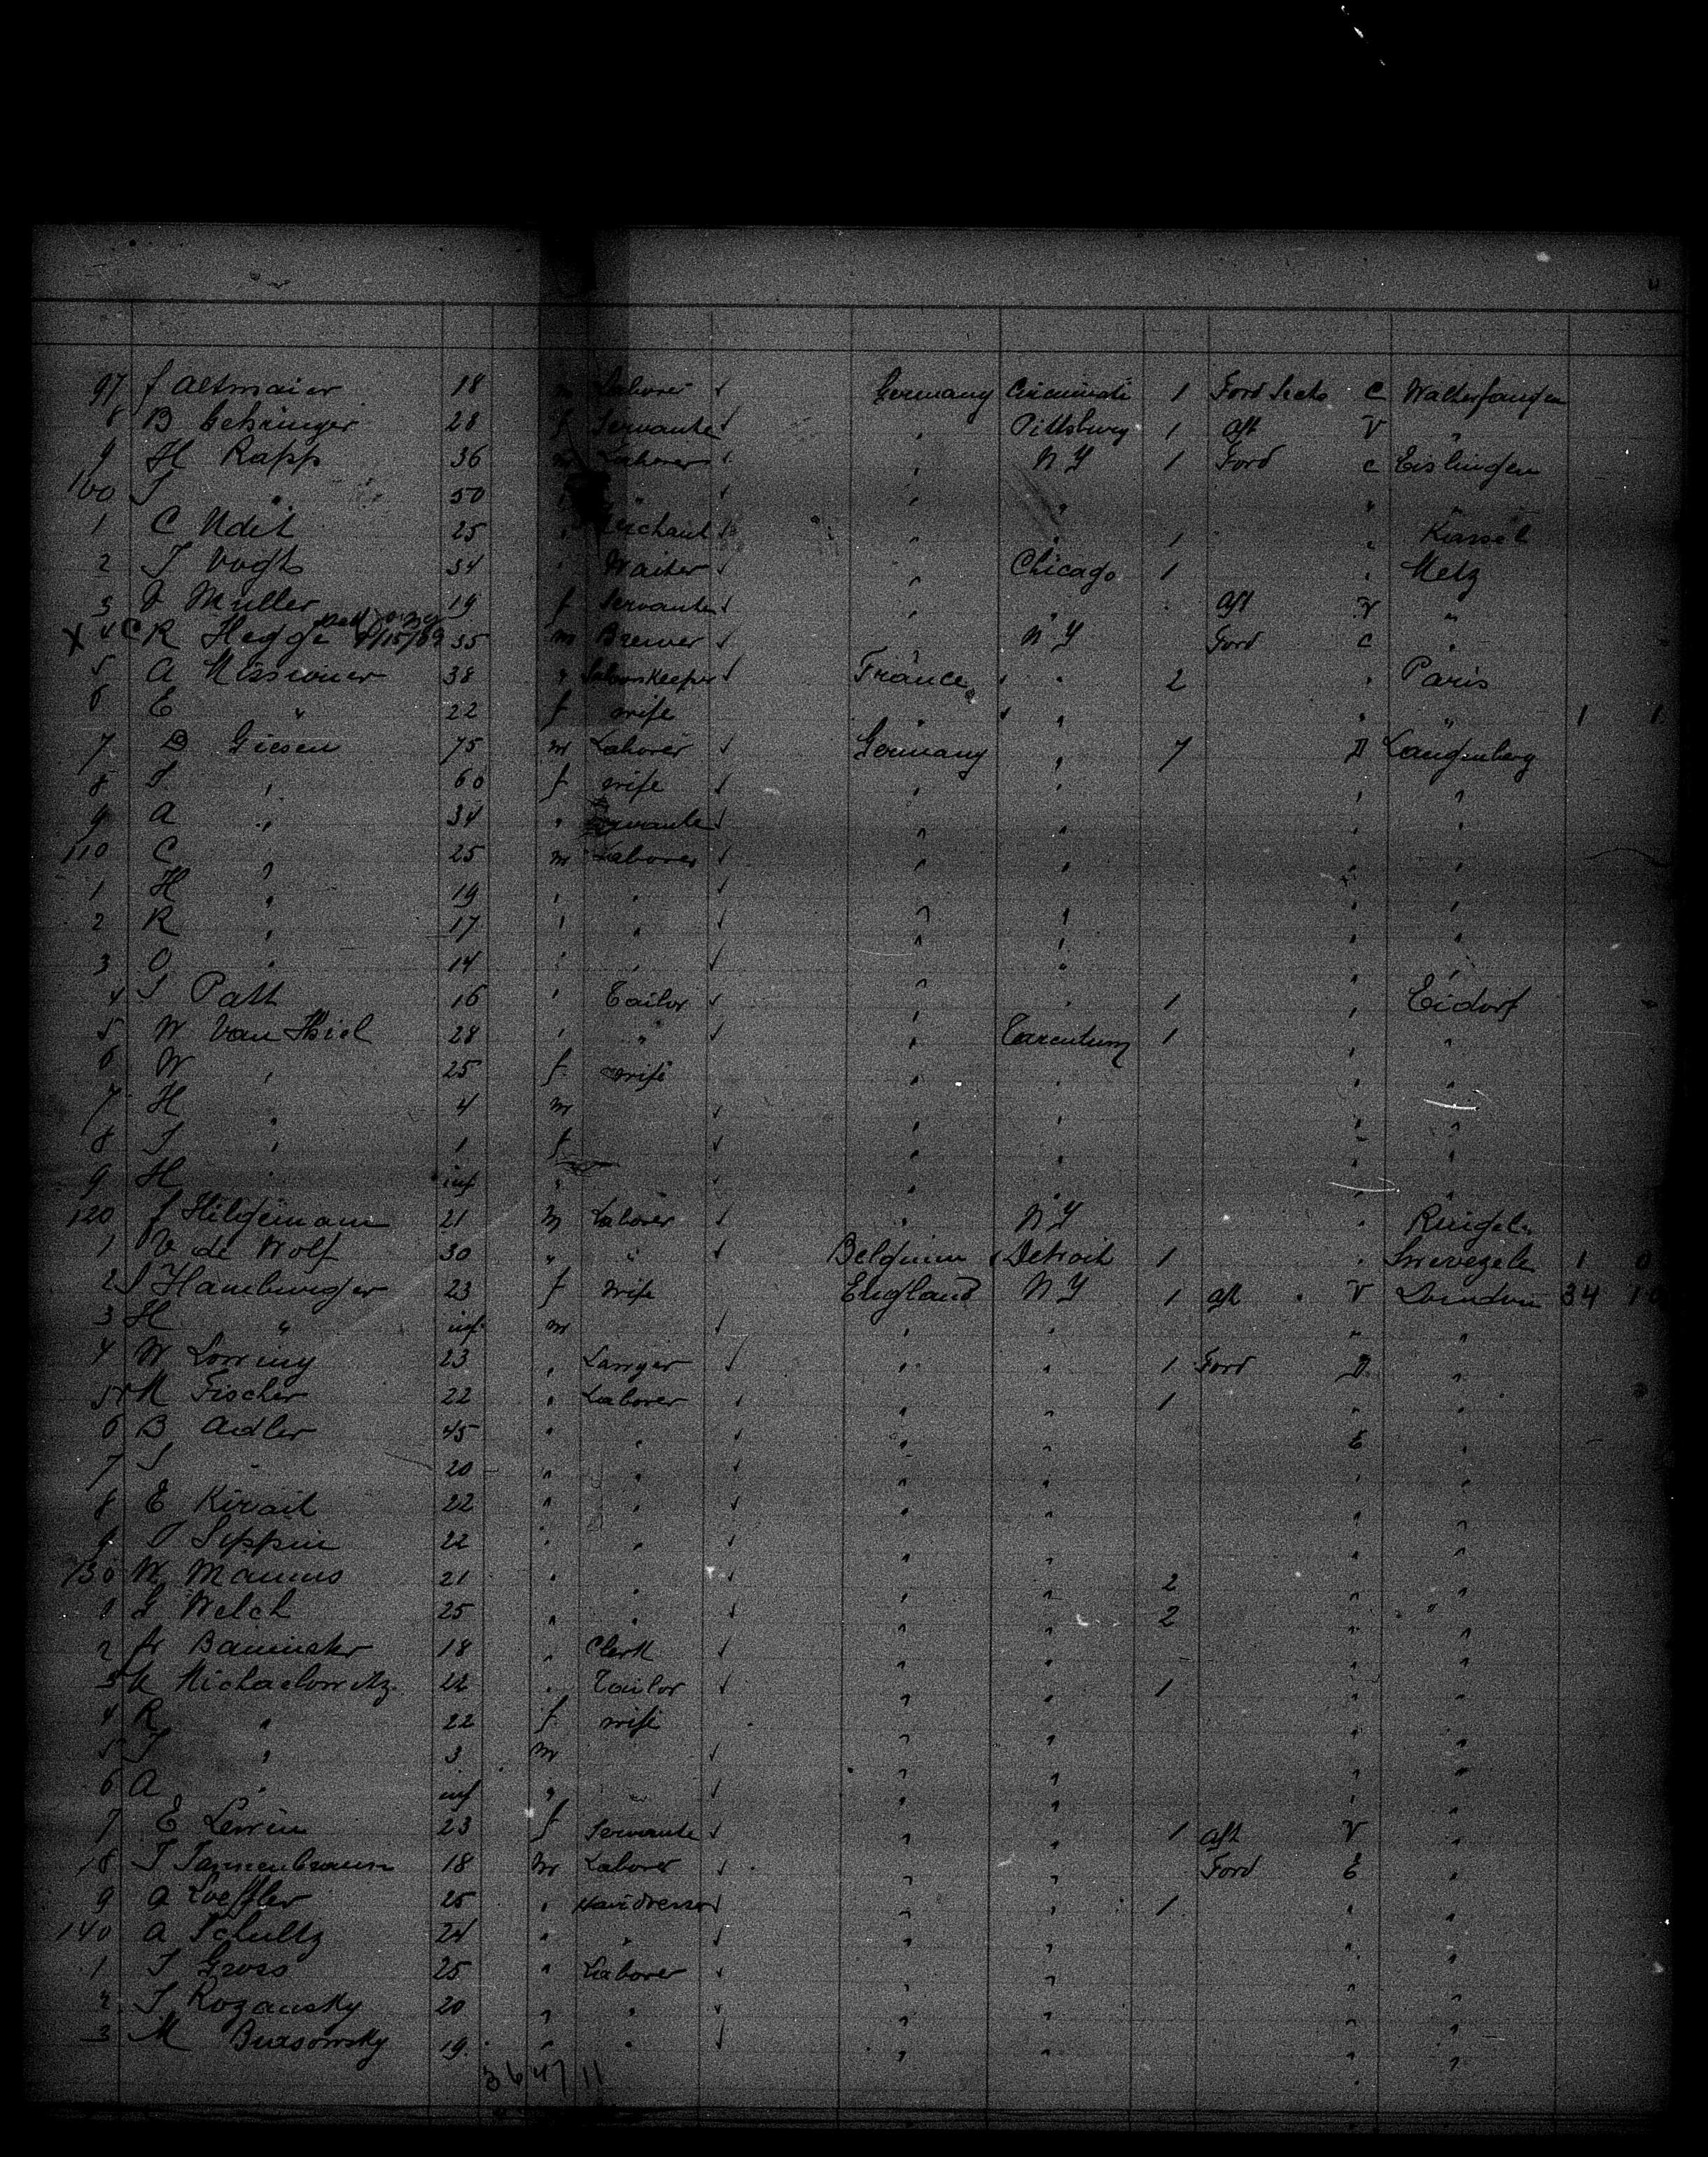 97 J Altmaier 18 m Laborer ✓ Germany Cincinnati 1 Ford Sects C Wallerfangen
8 B Gehringer 28 f Servante ✓ " Pittsburg 1 Aft V "
9 H Rapp 36 m Laborer ✓ " N Y 1 Ford C Eislingen
100 J " 50 " " ✓ " " "
1 C 25 " ✓ " " 1 " Kassel
2 J Vogts 34 " Waiter ✓ " Chicago 1 " Metz
3 Muller 19 f Servante ✓ " " Aft V "
X 4 C R Hegge 8/15/69 35 m Brewer ✓ " N Y Ford C "
5 A Missioner 38 " ✓ France " 2 " Paris
6 E " 22 f wife " " " " 1 1
7 D Giesen 75 m Laborer ✓ Germany " 7 D Langenberg
8 S " 60 f wife ✓ " " " "
9 A " 34 " Servante ✓ " " " "
110 C " 25 m Laborer ✓ " " "
1 H " 19 " " ✓ " " " "
2 R " 17 " " ✓ " " " "
3 O " 14 " " ✓ " " " "
4 J Path 16 " Tailor ✓ " " 1 " Eidorf
5 W Van Thiel 28 " " ✓ " Tarentum 1 " "
6 W " 25 f wife " " " "
7 H " 4 m ✓ " " " "
8 J " 1 f ✓ " " " "
9 H " inf " ✓ " " "
120 J Hilgemann 21 m Laborer ✓ " N Y "
1 V de Wolf 30 " " ✓ Belgium Detroit 1 " 1 0
2 S Hamburger 23 f wife England N Y 1 Aft V London 34
3 H " inf m ✓ " " " "
4 W Lorriny 23 " Lawyer ✓ " " 1 Ford D "
5 M Fischer 22 " Laborer ✓ " " 1 " "
6 B Adler 45 " " ✓ " " E "
7 S " 20 " " ✓ " " " "
8 E Kirvait 22 " " ✓ " " "
9 Sippin 22 " " ✓ " " " "
130 W Mannus 21 " " ✓ " " 2 " "
1 G Welch 25 " " ✓ " " 2 " "
2 Baminskr 18 " Clerk ✓ " " " "
3 M Michaelowitz 22 " Tailor ✓ " " 1 " "
4 R " 22 f wife " " " "
5 J " 3 m ✓ " " " "
6 A " inf " ✓ " " " "
7 E Lewin 23 f Servante ✓ " " 1 Aft V "
8 J Tannenbraum 18 m Laborer ✓ " " Ford E "
9 A Loeffler 25 " Hairdresser ✓ " " 1 " "
140 A Schultz 24 " " ✓ " " " "
1 J Gross 25 " Laborer ✓ " " " "
2 J Rozansky 20 " " ✓ " " " "
3 M Bursowsky 19 " " ✓ " " " "
36 47 11